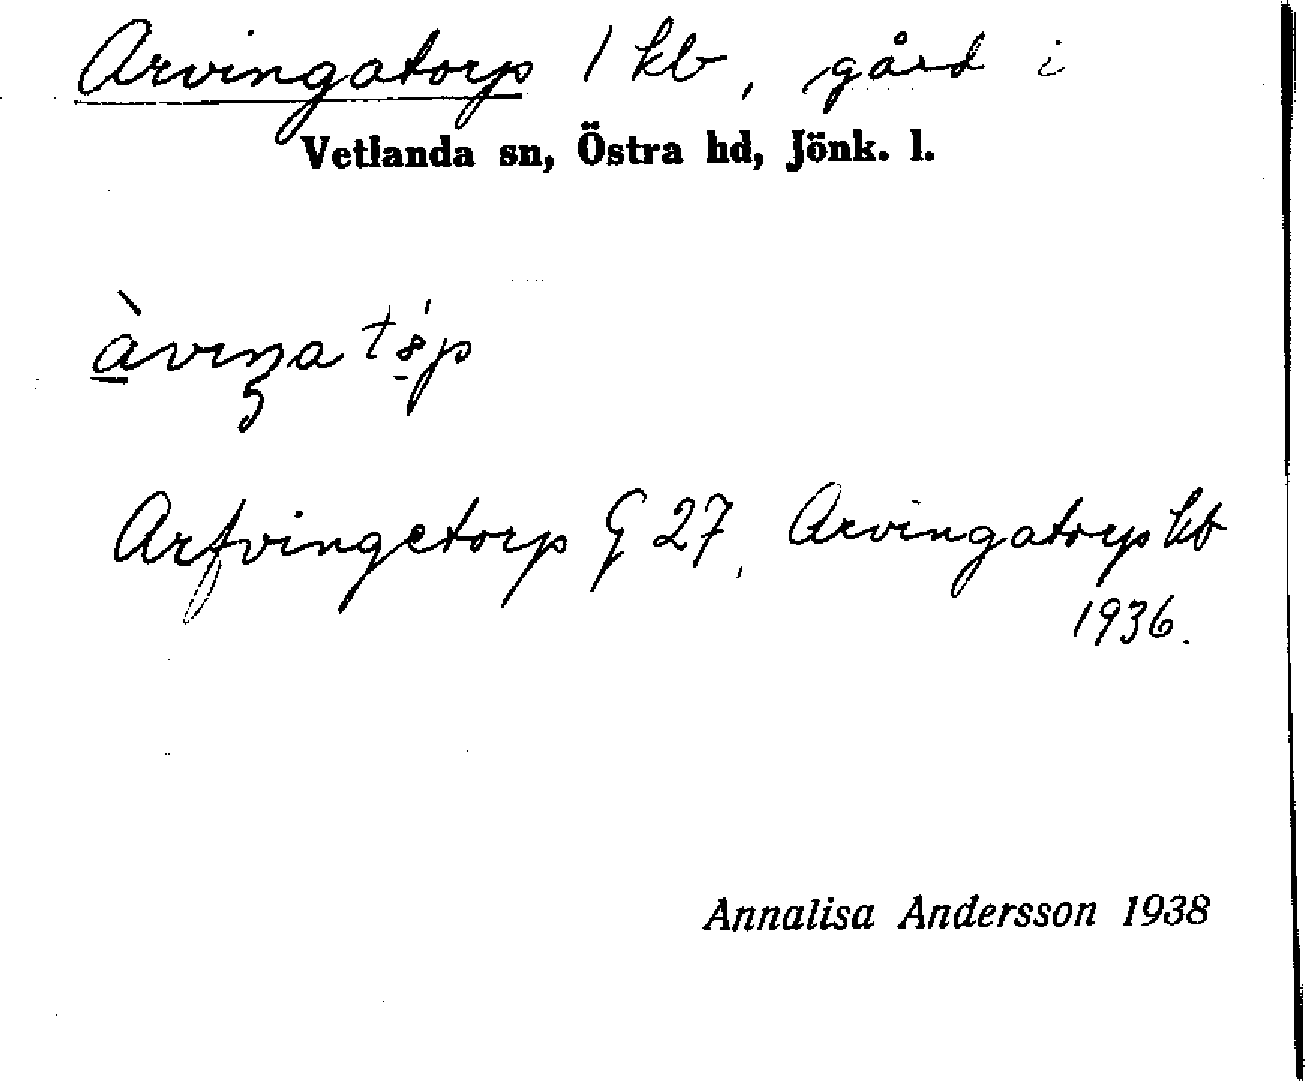 Arvingatorp 1 kb, gård i
Vetlanda sn, Östra hd, Jönk. l.
Arfvingetorp G 27, Arvingatorp kb
1936.
Annalisa Andersson 1938